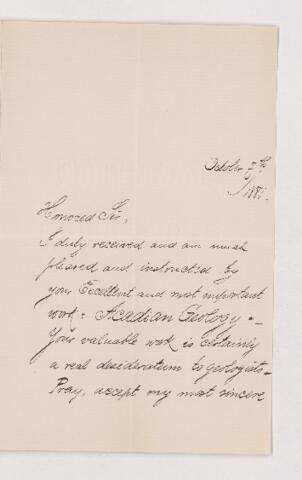 October 7th
188
Honored Sir,
I duly received and am much
pleased and instructed by
your Excellent and most important
work: Acadian Geology. —
Your valuable work is certainly
a real desideratum to geologists —
Pray, accept my most sincere